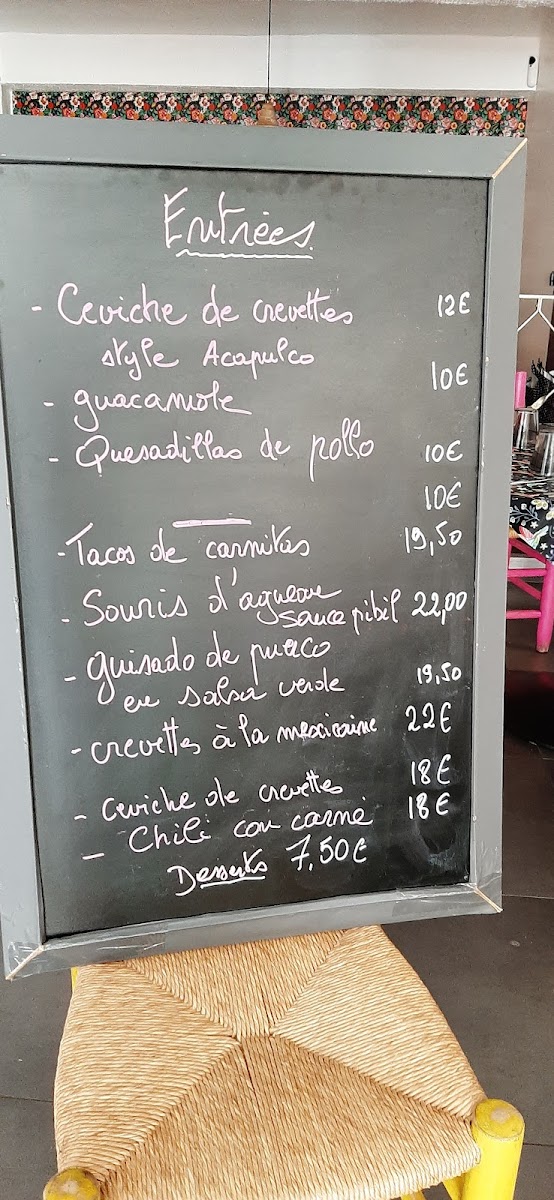 Entrées
- Ceviche de crevettes 12€
style Acapulco
- guacamole 10€
- Quesadillas de pollo 10€
10€
- Tacos de carnitas 19,50
- Souris d'agneau
sauce pibil 22,00
- guisado de puerco
en salsa verde 19,50
- crevettes à la mexicaine 22€
- ceviche de crevettes 18€
- Chili con carne 18€
Desserts 7,50€